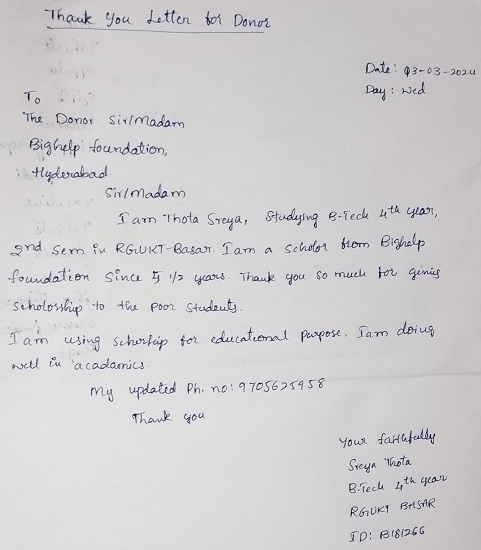 Thank You Letter for Donor
Date: 13-03-2024
Day: Wed
To
The Donor Sir/Madam
Bighelp foundation,
Hyderabad.
Sir/Madam
I am Thota Sreya, Studying B-Tech 4th year,
2nd sem in RGUKT-Basar. I am a Scholor from Bighelp
foundation Since 5 1/2 years. Thank you so much for giving
Scholosship to the poor students.
I am using for educational purpose. I am doing
well in acadamics
My updated Ph. no: 9705625958
Thank you
Your faithfully
Sreya Thota
B.Tech 4th year
RGUKT BASAR
ID: B181266